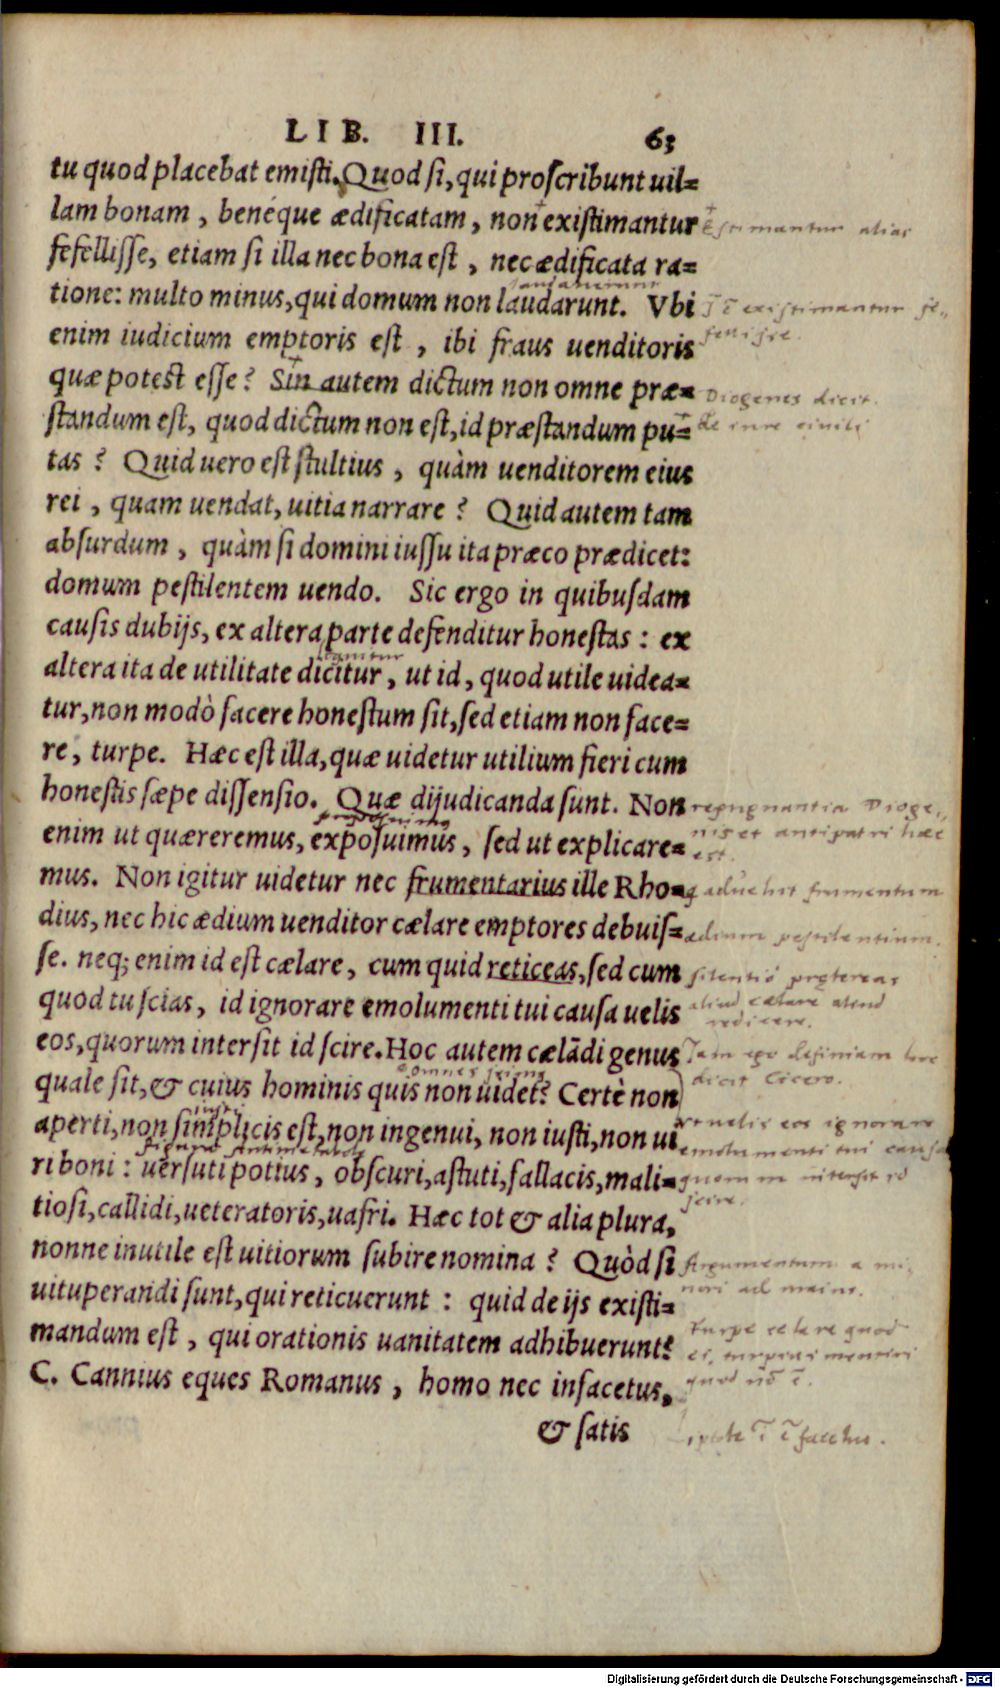 LIB. III. 63
tu quod placebat emisti. Quod si, qui proscribunt uil=
lam bonam, benéque ædificatam, non existimantur
fefellisse, etiam si illa nec bona est, nec ædificata ra=
tione: multo minus, qui domum non laudarunt. Vbi
enim iudicium emptoris est, ibi fraus uenditoris
quæ potest esse? Sin autem dictum non omne præ=
standum est, quod dictum non est, id præstandum pu=
tas? Quid uero est stultius, quàm uenditorem eius
rei, quam uendat, uitia narrare? Quid autem tam
absurdum, quàm si domini iussu ita præco prædicet:
domum pestilentem uendo. Sic ergo in quibusdam
causis dubijs, ex altera parte defenditur honestas: ex
altera ita de utilitate dicitur, ut id, quod utile uidea=
tur, non modò facere honestum sit, sed etiam non face=
re, turpe. Hæc est illa, quæ uidetur utilium fieri cum
honestis sæpe dissensio. Quæ dijudicanda sunt. Non
enim ut quæreremus, exposuimus, sed ut explicare=
mus. Non igitur uidetur nec frumentarius ille Rho=
dius, nec hic ædium uenditor cælare emptores debuis=
se. neq; enim id est cælare, cum quid reticeas, sed cum
quod tu scias, id ignorare emolumenti tui causa uelis
eos, quorum intersit id scire. Hoc autem cælādi genus
quale sit, & cuius hominis quis non uidet? Certè non
aperti, non simplicis est, non ingenui, non iusti, non ui
ri boni: uersuti potius, obscuri, astuti, fallacis, mali=
tiosi, callidi, ueteratoris, uafri. Hæc tot & alia plura,
nonne inutile est uitiorum subire nomina? Quòd si
uituperandi sunt, qui reticuerunt: quid de ijs existi=
mandum est, qui orationis uanitatem adhibuerunt?
C. Cannius eques Romanus, homo nec infacetus,
& satis
Estimantur alias
existimantur fe
fellisse.
Diogenes dicit.
de iure ciuili
repugnantia Dioge
nis et antipatri hæc
est.
aduehit frumentum
ædium pestilentium.
silentio prętereas
aliud cælare aliud
redicere.
Jam ego definiam hoc
dicit Cicero.
uelis eos ignorare
emolumenti tui causa
quorum intersit id
scire.
Argumentum a mi
nori ad maius.
Turpe celare quod
mentiri
quod nō ē.
Digitalisierung gefördert durch die Deutsche Forschungsgemeinschaft - DFG